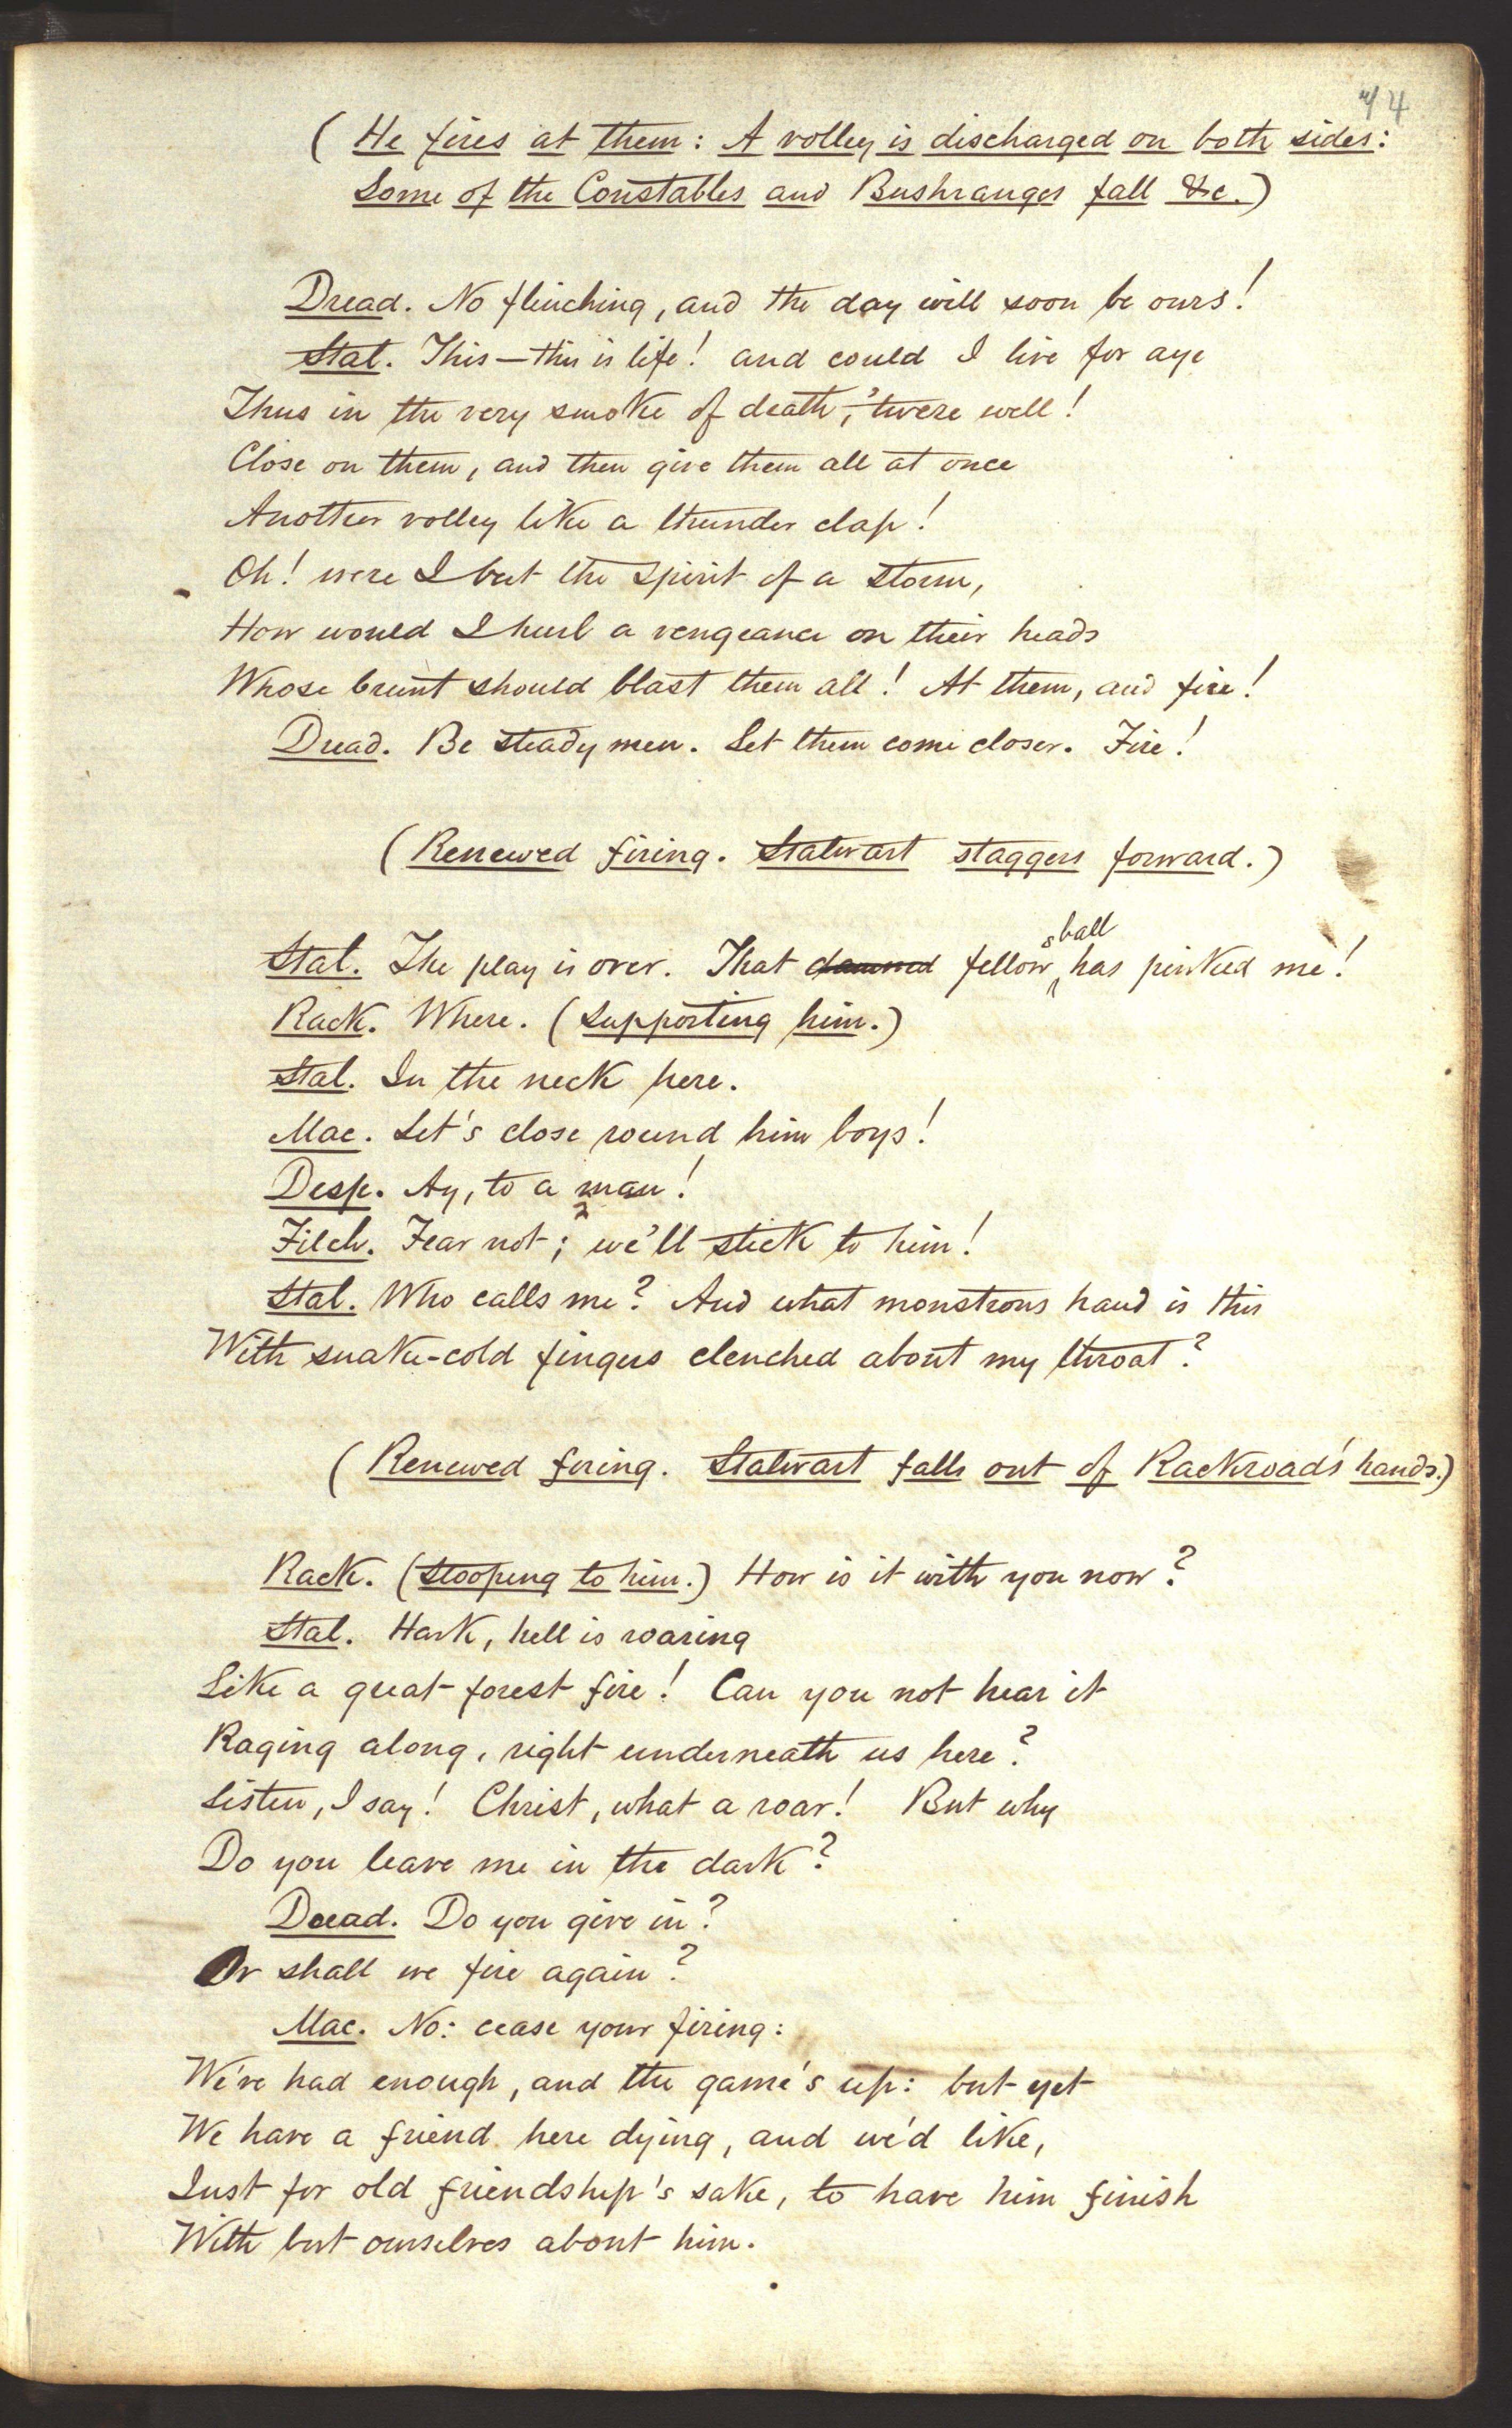 74
(He fires at them: A volley is discharged on both sides:
Some of the Constables and Bushranges fall &c.)
Dread. No flinching, and the day will soon be ours!
Stal. This—this is life! and could I live for aye
Thus in the very smoke of death, 'twere well!
Close on them, and then give them all at once
Another volley like a thunder clap!
Oh! were I but the spirit of a storm,
How would I hurl a vengeance on their heads
Whose brunt should blast them all! At them, and fire!
Dread. Be steady men. Let them come closer. Fire!
(Renewed firing. Stalwart staggers forward.)
Stal. The play is over. That damned fellow's ball has pinked me!
Rack. Where. (supporting him.)
Stal. In the neck here.
Mac. Let's close round him boys!
Desp. Ay, to a man!
Filch. Fear not; we'll stick to him!
Stal. Who calls me? And what monstrous hand is this
With snake-cold fingers clenched about my throat?
(Renewed firing. Stalwart falls out of Rackroad's hands.)
Rack. (stooping to him.) How is it with you now?
Stal. Hark, hell is roaring
Like a great forest fire! Can you not hear it
Raging along, right underneath us here?
Listen, I say! Christ, what a roar! But why
Do you leave me in the dark?
Dread. Do you give in?
Or shall we fire again?
Mac. No: cease your firing:
We've had enough, and the game's up: but yet
We have a friend here dying, and we'd like,
Just for old friendship's sake, to have him finish
With but ourselves about him.